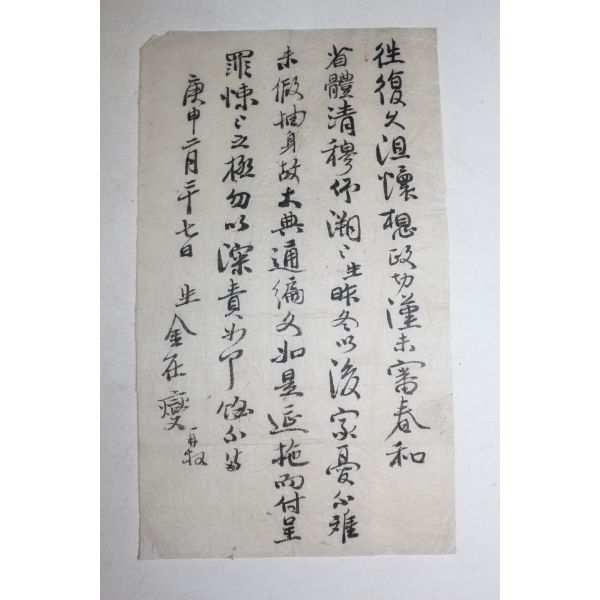 往復久沮懷想政切謹未審春和
省體淸穆仰溯〻生昨冬以後家憂不難
未假抽身故大典通編久如是延拖而付呈
罪悚〻之極勿以深責如何餘不備
庚申二月二十七日 生 金在 再拜